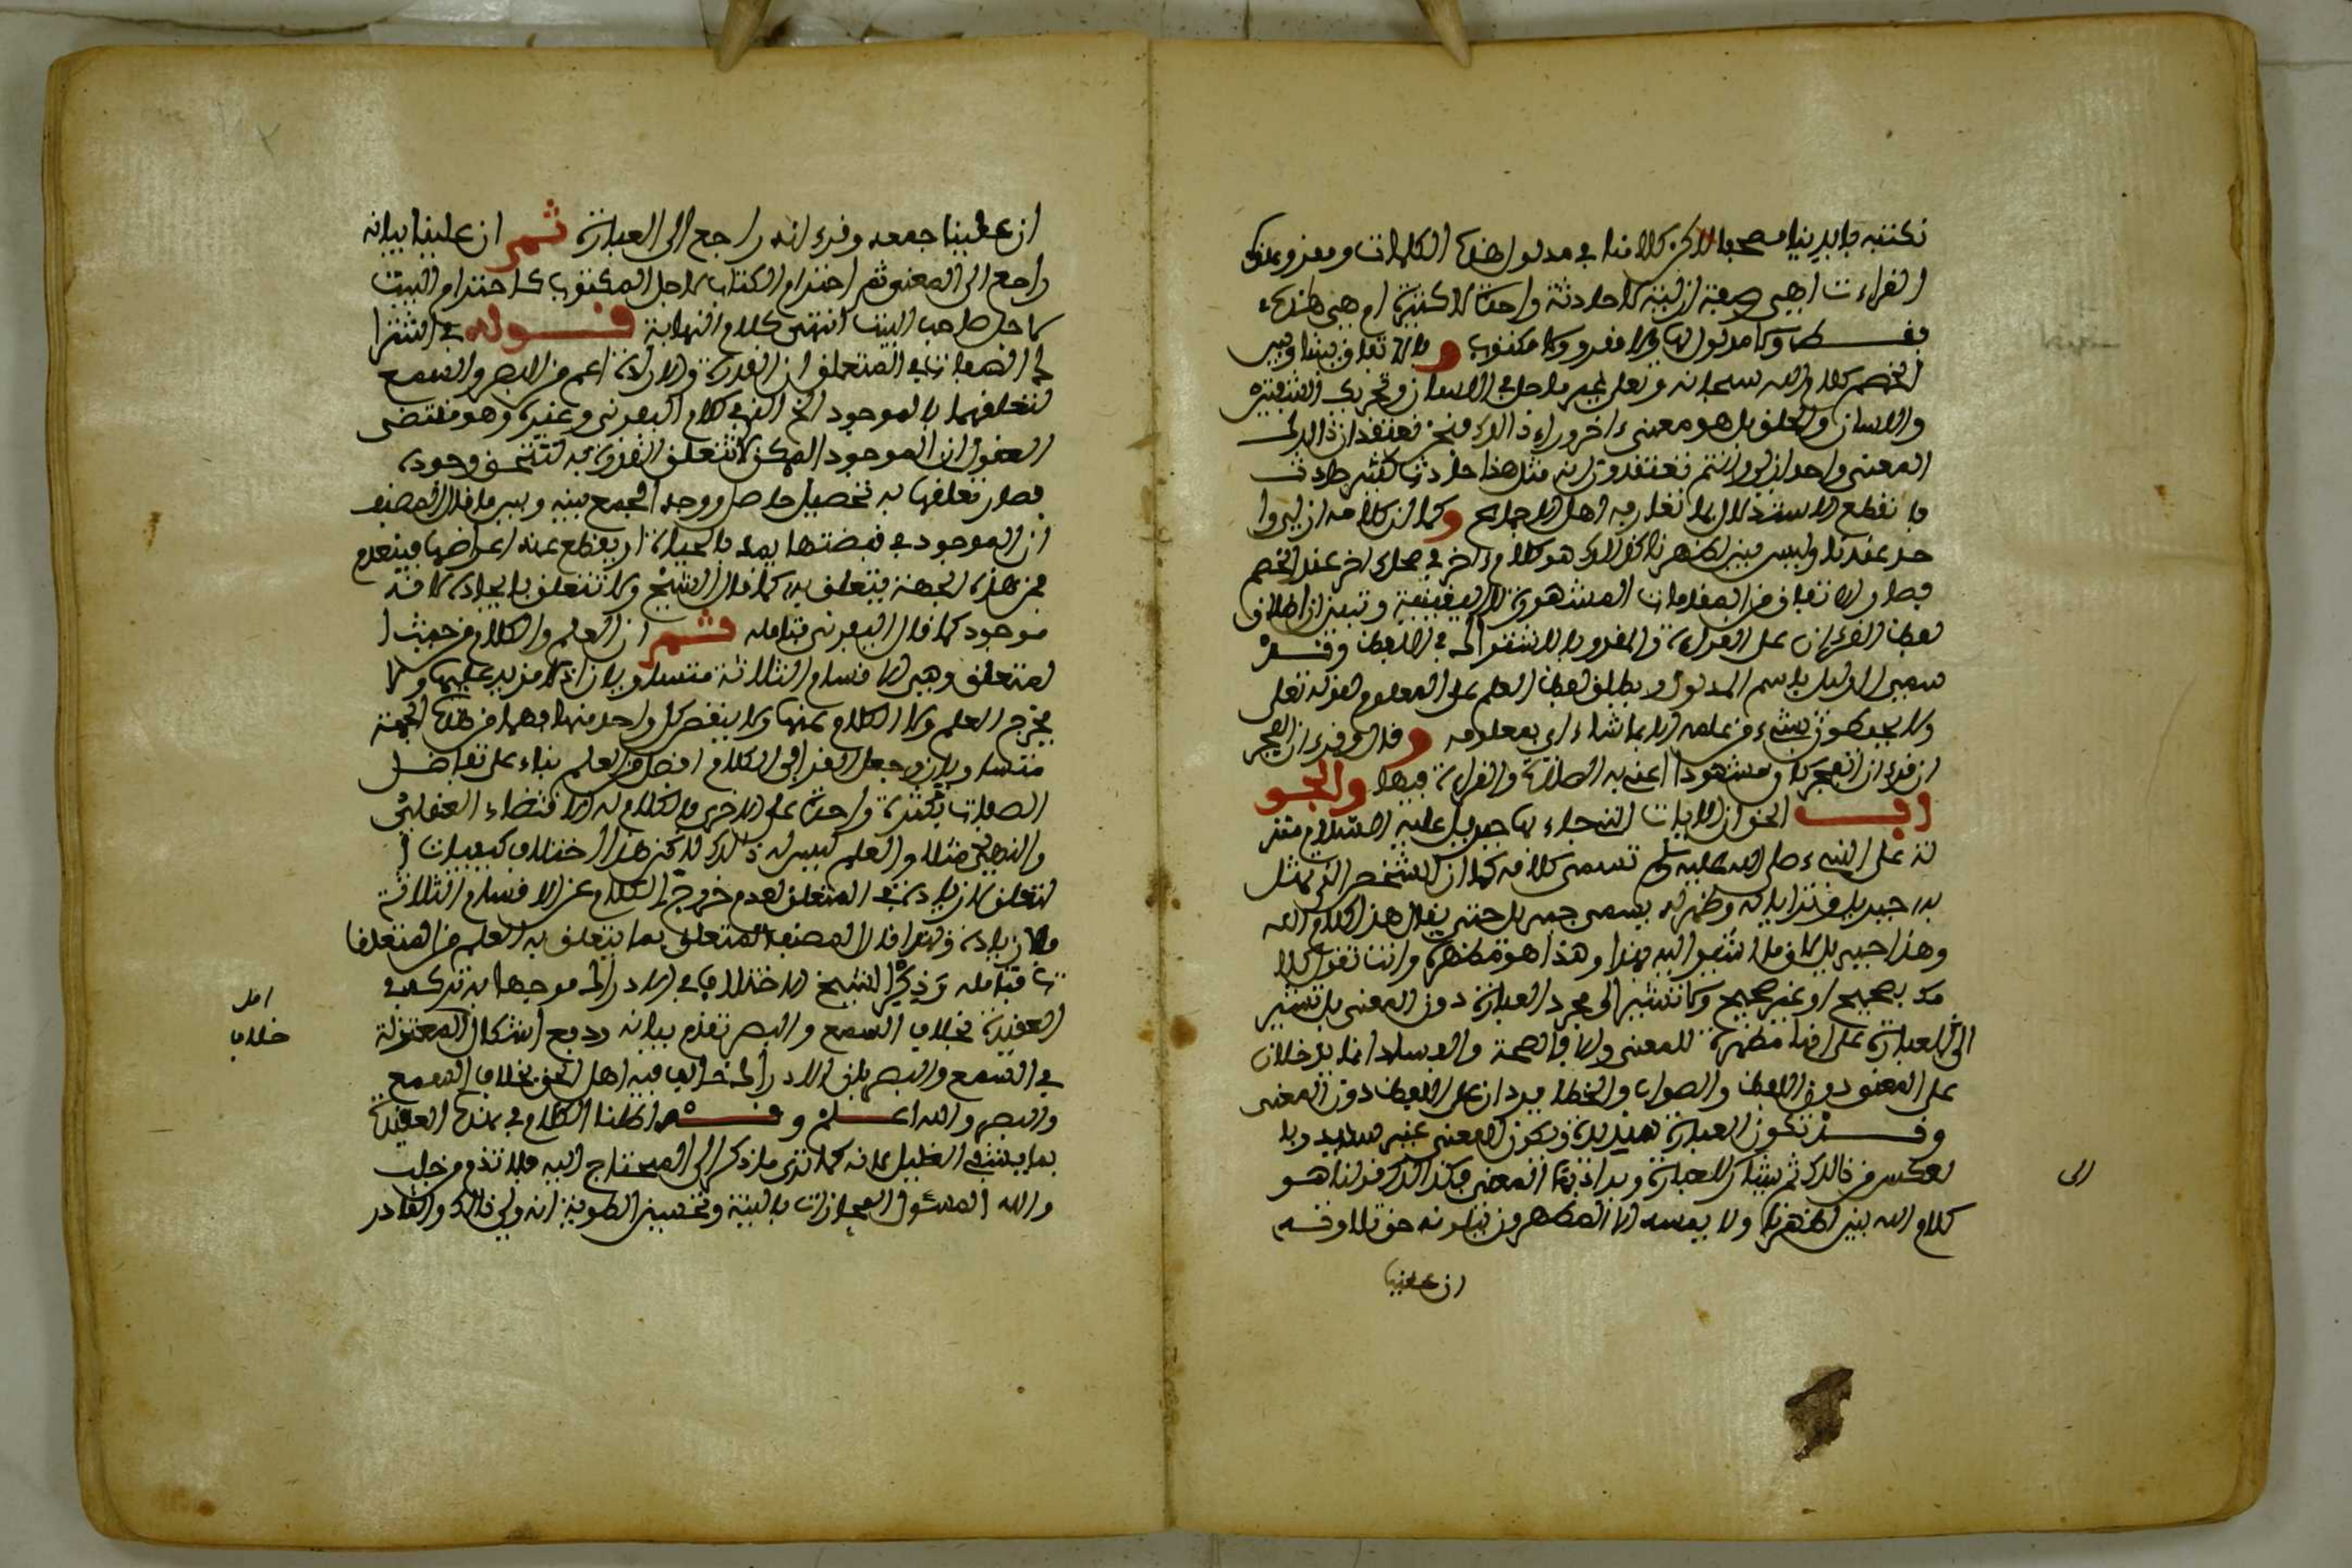 نكتبه بايدينا مصحبا لاكن كلامنا في مدلول هذه الكلمات ومقروء هذه
القراءت اهي صفة ازلية لا حادثة واحدة لا كثيرة ام هي هذه
فقط ولا مدلول لها ولا مقروء ولا مكتوب والاتفاق بيننا وبين
الخصم كلام الله سبحانه وتعلى غير ما حل في اللسان وتحريك الشفتين
واللسان والحلق بل هو معنى ءاخر وراء ذالك فنحن نعتقد ان ذالك
المعنى واحد ازلي وانتم تعتقدون انه مثل هذا حادث كثير حادث
فانقطع الاستدلال بما تعارفه اهل الاجماع وكما ان كلامه ازلي وا
حد عندنا وليس بين اظهرنا كذالك هو كلام ءاخر في محل ءاخر عند الخصم
فصار الاتفاق من المقدمات المشهورة لا اليقينية وتبين ان اطلاق
لفظ القرءان على القراءة والمقروء بالاشتراك في اللفظ وقد
سمي الدليل باسم المدلول ويطلق لفظ العلم على المعلوم لقوله تعلى
ولا يحيطون بشيء من علمه الا بما شاء اي بمعلومه وقال وقرءان الفجر
ان قرءان الفجر كان مشهودا عنى به الصلاة والقراءة فيها والجو
اب الحق ان الايات التي جاء بها جبريل عليه السلام منز
لة على النبيء صلى الله عليه وسلم تسمى كلامه كما ان الشخص الذي تمثل
به جبريل وتراياله وظهر له يسمى جبريل حتى يقال هذا كلام الله
وهذا جبريل كان ما اشير اليه بهذا وهذا هو مظهره وانت تقول كلا
مك صحيح او غير صحيح ولا تشير الى مجرد العبارة دون المعنى بل تشير
الى العبارة على انها مظهرة للمعنى والا فالصحة والفساد انما يدخلان
على المعنى دون اللفظ والصواب والخطا يردان على اللفظ دون المعنى
وقد تكون العبارة سديدة ويكون المعنى غير سديد وبا
لعكس من ذالك ثم يشار للعبارة ويراد بها المعنى فكذالك قولنا هو
كلام الله بين اظهرنا ولا يمسه الا المطهرون يتلونه حق تلاوته
ان علينا
الى
ان علينا جمعه وقرءانه راجع الى العبارة ثم ان علينا بيانه
راجع الى المعنى ثم احترام الكتاب لاجل المكتوب كاحترام البيت
لاجل صاحب البيت انتهى كلام النهاية قوله في اشترا
ك الصفات في المتعلق ان القدرة والارادة اعم من البصر والسمع
لتعلقهما بالموجود الخ الذي في كلام البفرني وغيره وهو مقتضى
العقول ان الموجود الممكن لا تتعلق القدرة به لتحقق وجوده
فصار تعلقها به تحصيل حاصل ووجه الجمع بينه وبين ما قال المصنف
ان الموجود في قبضتها يمده بالحياة او يقطع عنه اعراضها فينعدم
فمن هذه الجهة يتعلق به كما قال الشيخ ولا تتعلق بايجاده لانه
موجود كما قال البفرني فتامله ثم ان العلم والكلام من حيث ا
لمتعلق وهي الاقسام الثلاثة متساويان اذ لا مزيد عليها ولا
يخرج العلم ولا الكلام عنها ولا ينقص كل واحد منهما فهما من هذه الجهة
متساويان وجعل القرافي الكلام افضل من العلم بناء على تفاضل
الصفات بكثرة واحدة على الاخرى فالكلام له الاقتضاء العقلي
والنهي مثلا والعلم ليس له ذالك لاكن هذا اختلاف كيفيات ا
لتعلق لا زيادة في المتعلق لعدم خروج الكلام عن الاقسام الثلاثة
ولا زيادة ولهذا قال المصنف المتعلق بما يتعلق به العلم من المتعلقا
ت فتامله وذكر الشيخ الاختلاف في الادراك موجها به تركه في
العقيدة بخلاف السمع والبصر تقدم بيانه ودفع اشكال المعتزلة
في السمع والبصر بان الادراك خالف فيه اهل الحق بخلاف السمع
والبصر والله اعلم وقد اطلنا الكلام في هذه العقيدة
بما يشفي الغليل لانه كما ترى ما ذكر الى المحتاج اليه فلا تذم من جلب
والله المسئول المجازات بالنية وتحسين الطوية انه ولي ذالك والقادر
امل
خلاف